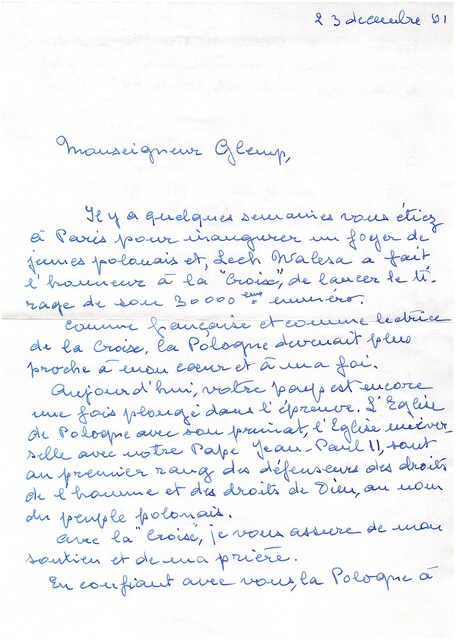 23 decembre 81
Monseigneur Glemp,
Il y a quelques semaines vous étiez
à Paris pour inaugurer un foyer de
jeunes polonais et, Lech Walesa a fait
l'honneur à la "Croix", de lancer le ti-
rage de son 30000ème numéro.
Comme française et comme lectrice
de la Croix, la Pologne devenait plus
proche à mon cœur et à ma foi.
Aujourd'hui, votre pays est encore
une fois plongé dans l'épreuve. L'Eglise
de Pologne avec son primat, l'Eglise univer-
selle avec notre Pape Jean-Paul II, sont
au premier rang des défenseurs des droits
de l'homme et des droits de Dieu, au nom
du peuple polonais.
Avec la "Croix", je vous assure de mon
soutien et de ma prière.
En confiant avec vous, la Pologne à